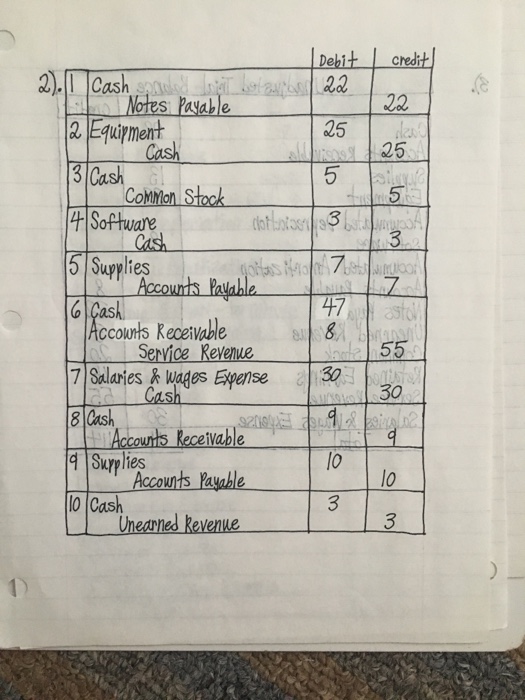 Debit credit
2). 1 Cash 22
Notes Payable 22
2 Equipment 25
Cash 25
3 Cash 5
Common Stock 5
4 Software 3
Cash 3
5 Supplies 7
Accounts Payable 7
6 Cash 47
Accounts Receivable 8
Service Revenue 55
7 Salaries & Wages Expense 30
Cash 30
8 Cash 9
Accounts Receivable 9
9 Supplies 10
Accounts Payable 10
10 Cash 3
Unearned Revenue 3